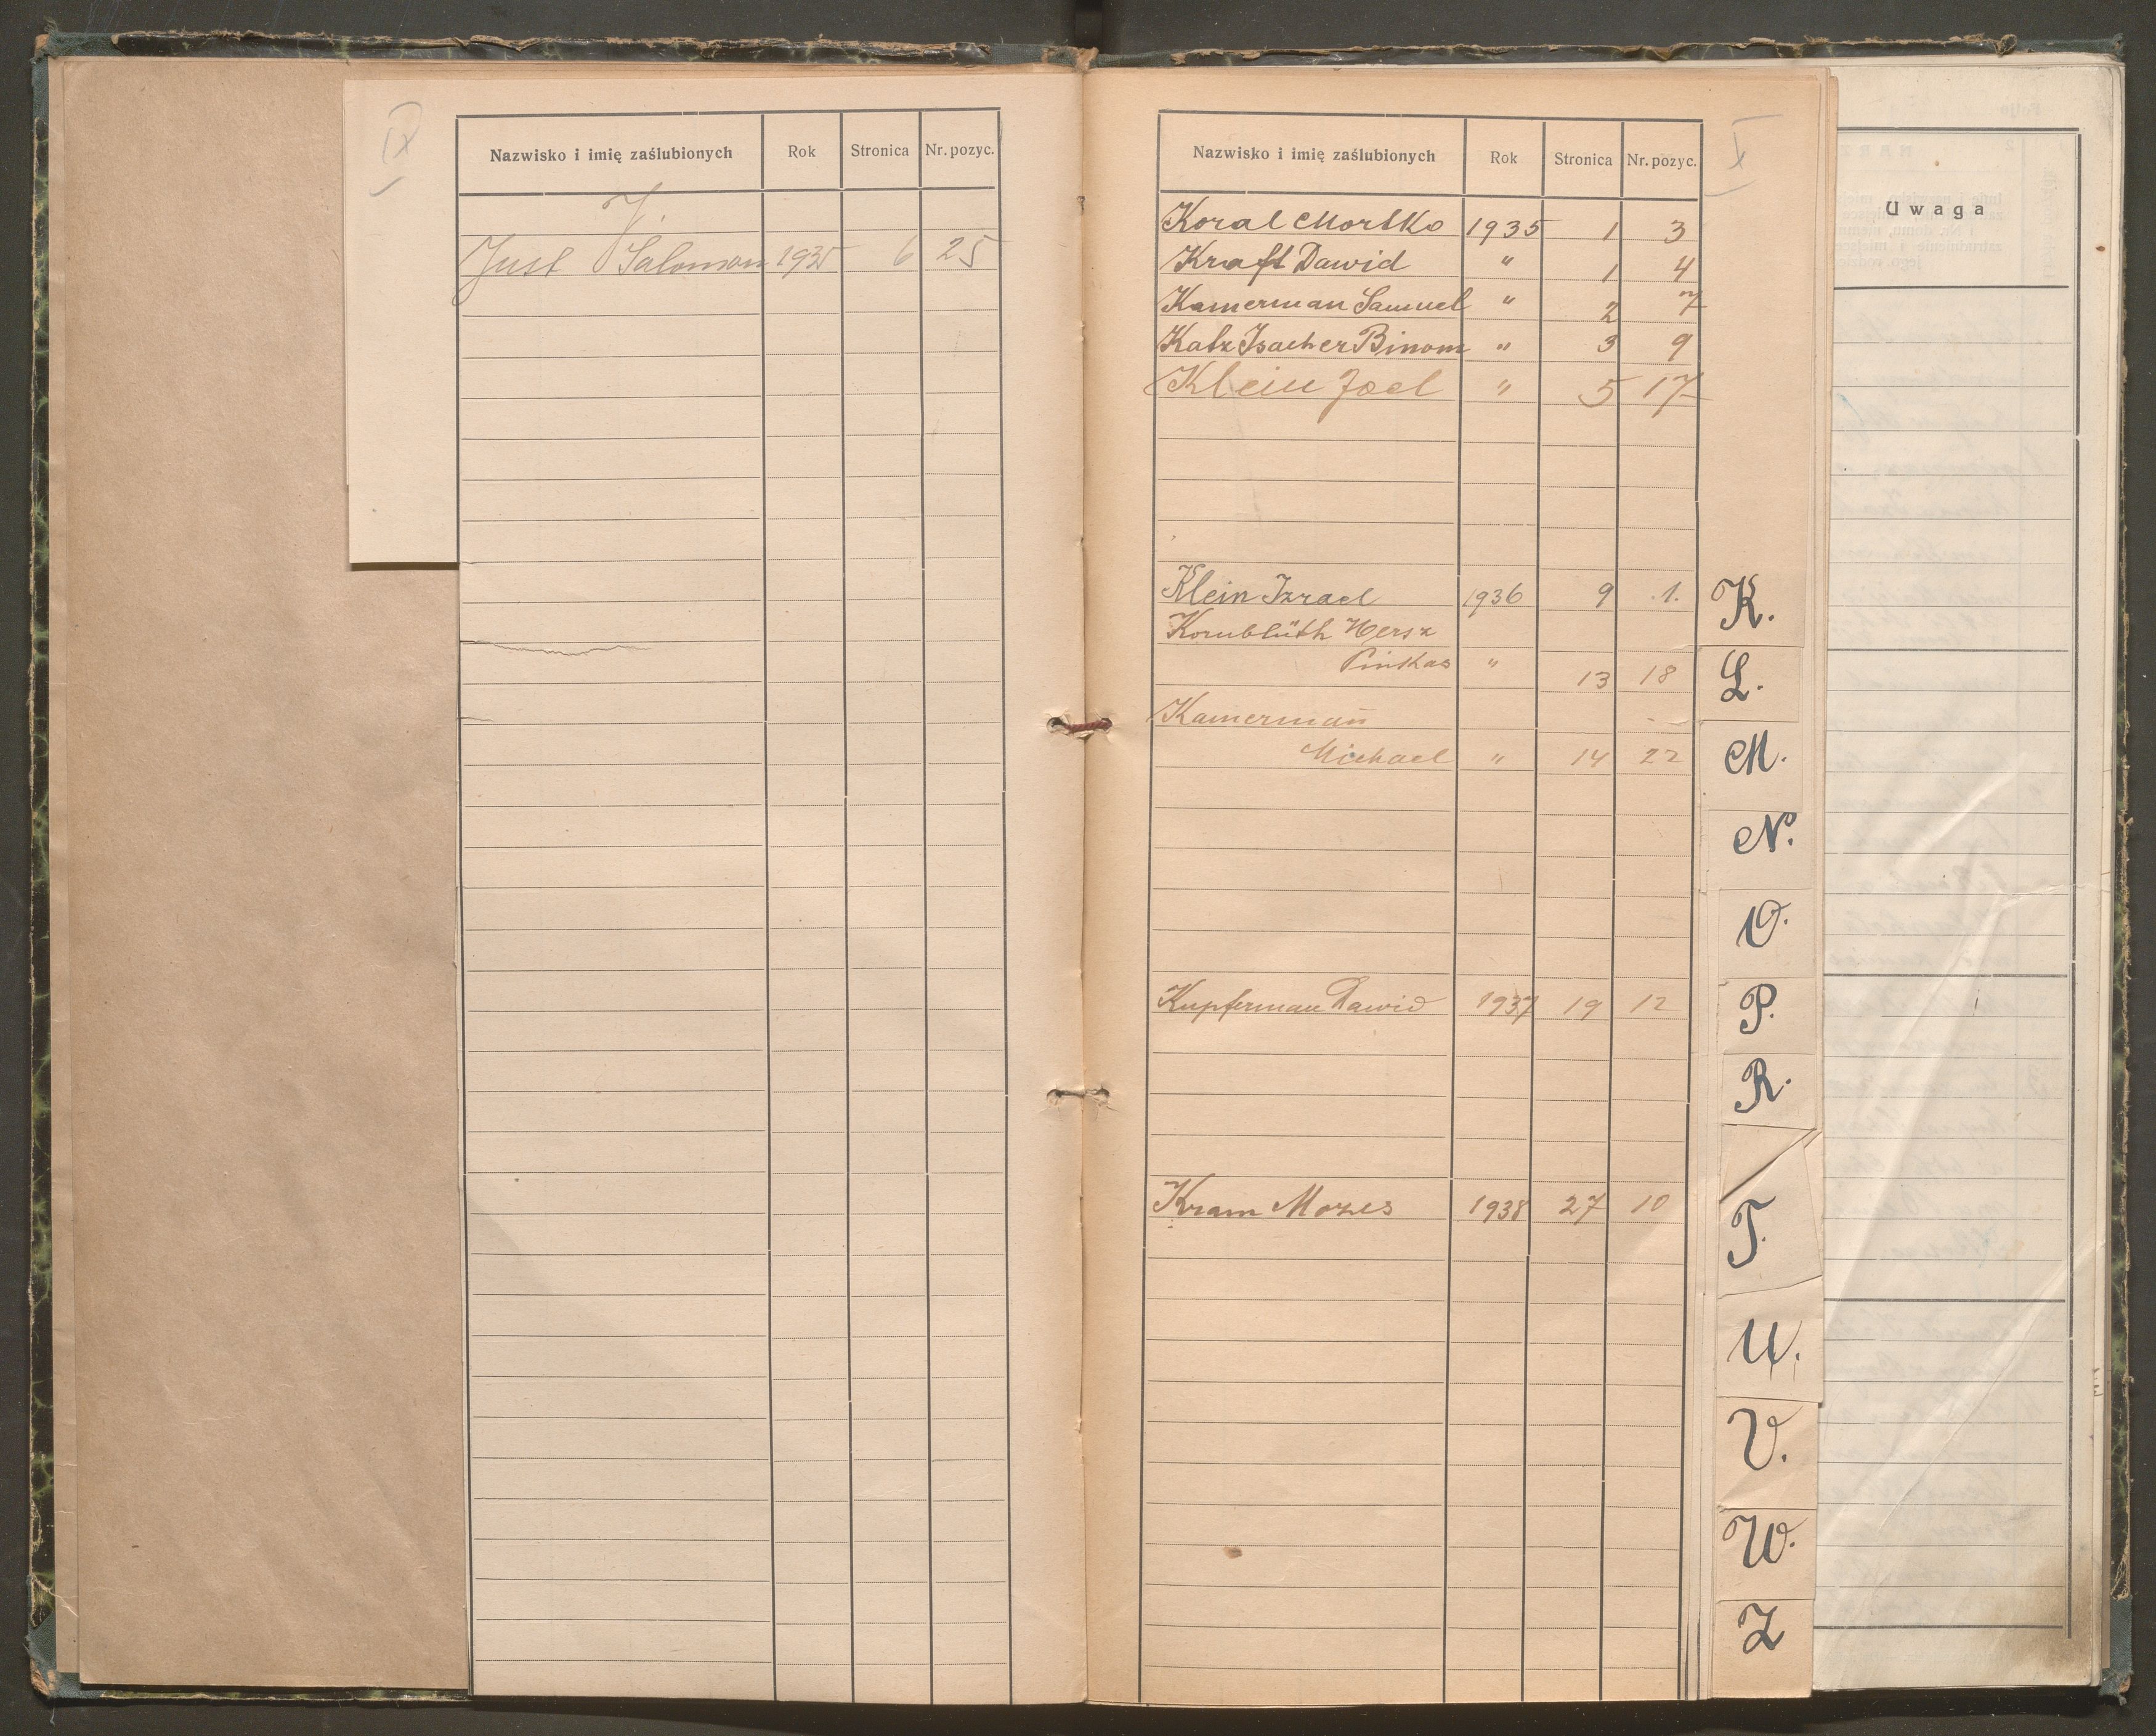 IX
Nazwisko i imię zaślubionych Rok Stronica Nr. pozyc.
J.
Just Salomon 1935 6 25
X
Nazwisko i imię zaślubionych Rok Stronica Nr. pozyc.
Koral Mortko 1935 1 3
Kraft Dawid " 1 4
Kamerman Samuel " 2 7
Katz Isacher Binom " 3 9
Klein Joel " 5 17
Klein Izrael 1936 9 1.
Kornblüth Hersz
Pinkas " 13 18
Kamerman
Michael " 14 22
Kupferman Dawid 1937 19 12
Kram Mozes 1938 27 10
K.
L.
M.
N.
O.
P.
R.
T.
U.
V.
W.
Z
Uwaga